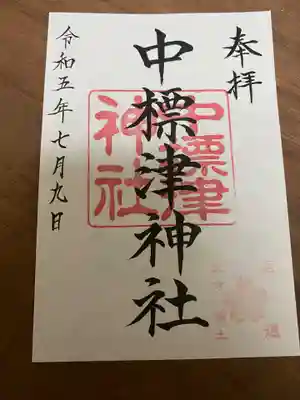 奉拝
中標津神社
中標津
神社
令和五年七月九日